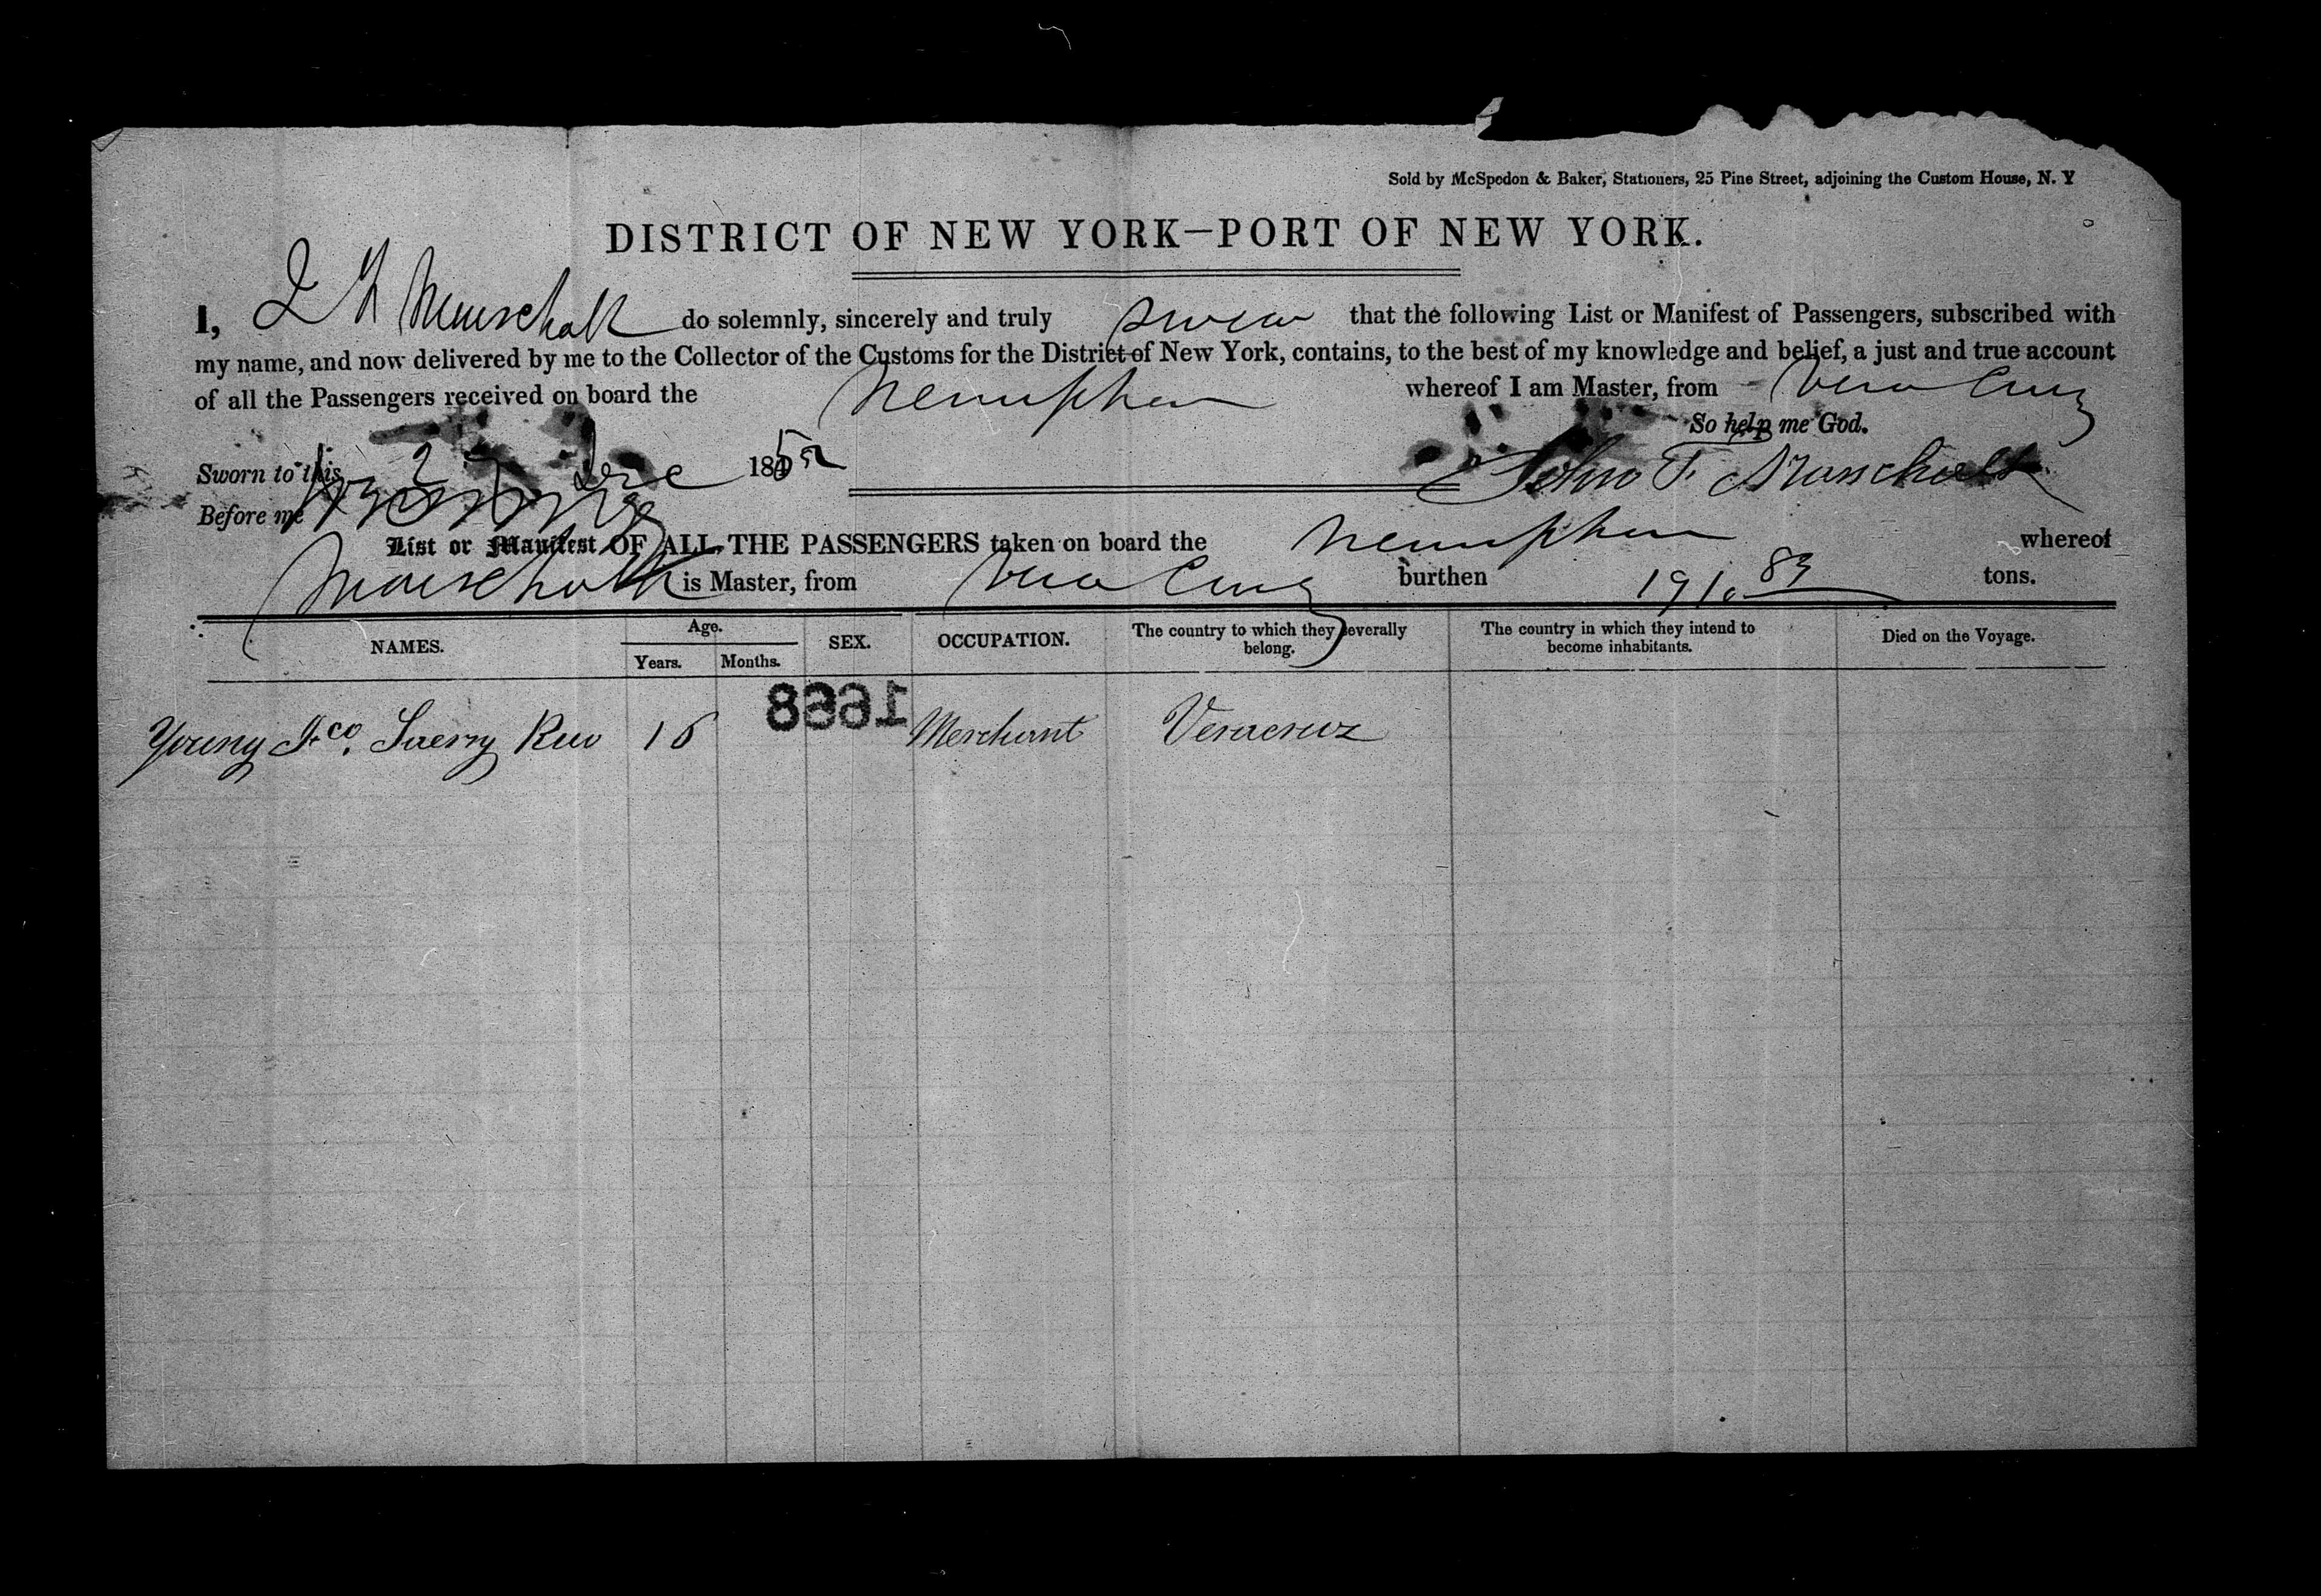 Sold by McSpedon & Baker, Stationers, 25 Pine Street, adjoining the Custom House, N. Y
DISTRICT OF NEW YORK—PORT OF NEW YORK.
I, do solemnly, sincerely and truly swear that the following List or Manifest of Passengers, subscribed with
my name, and now delivered by me to the Collector of the Customs for the District of New York, contains, to the best of my knowledge and belief, a just and true account
of all the Passengers received on board the whereof I am Master, from Vera Cruz
So help me God.
Sworn to this Dec 18552
John F.
Before me
List or Manifest OF ALL THE PASSENGERS taken on board the whereof
is Master, from Vera Cruz burthen 191 83 tons.
NAMES. Age. Years. Months. SEX. OCCUPATION. The country to which they severally belong. The country in which they intend to become inhabitants. Died on the Voyage.
1668
Young 16 Merchant Veracruz